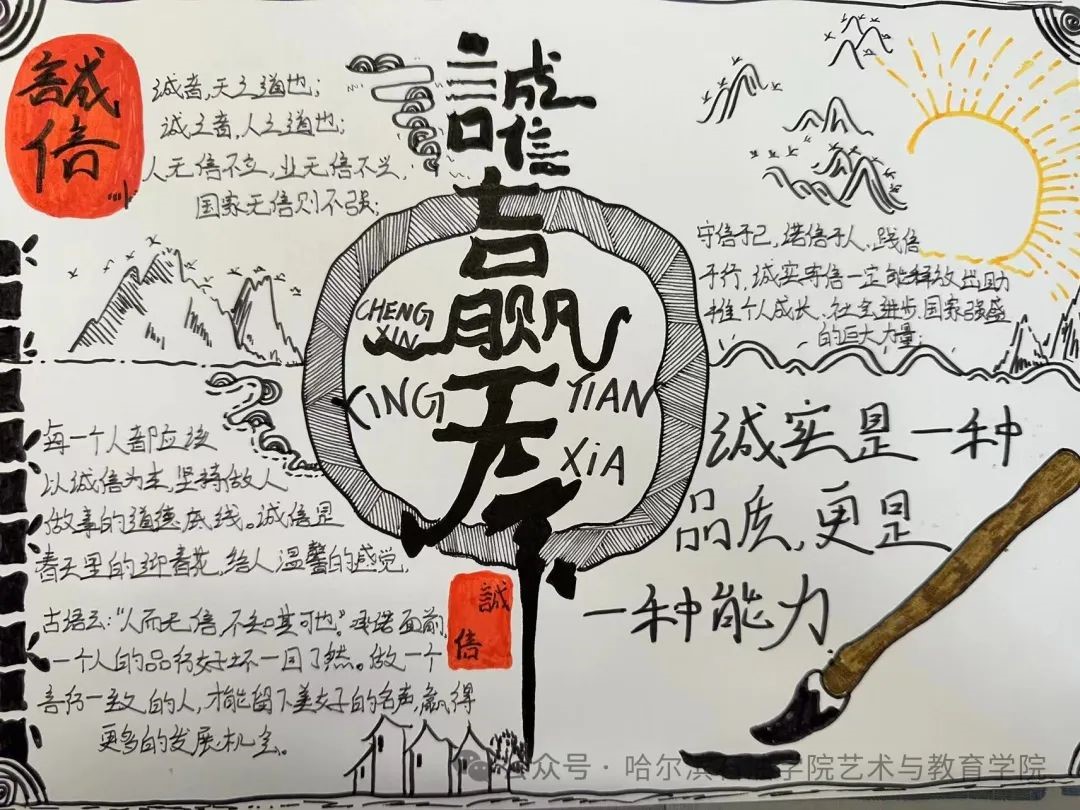 誠
信
诚者,天之道也;
诚之者,人之道也;
人无信不立,业无信不兴,
国家无信则不强;
誠信
赢
天
下
CHENG
XIN
YING
TIAN
XIA
守信于己,诺信于人、践信
于行,诚实守信一定能释放出助
推个人成长、社会进步、国家强盛
的巨大力量;
每一个人都应该
以诚信为本,坚持做人
做事的道德底线。诚信是
春天里的迎春花,给人温馨的感觉,
古语云:“人而无信,不知其可也”。承诺面前,
一个人的品行好坏一目了然。做一个
言行一致的人,才能留下美好的名声,赢得
更多的发展机会。
誠
信
诚实是一种
品质,更是
一种能力
公众号 · 哈尔滨石油学院艺术与教育学院